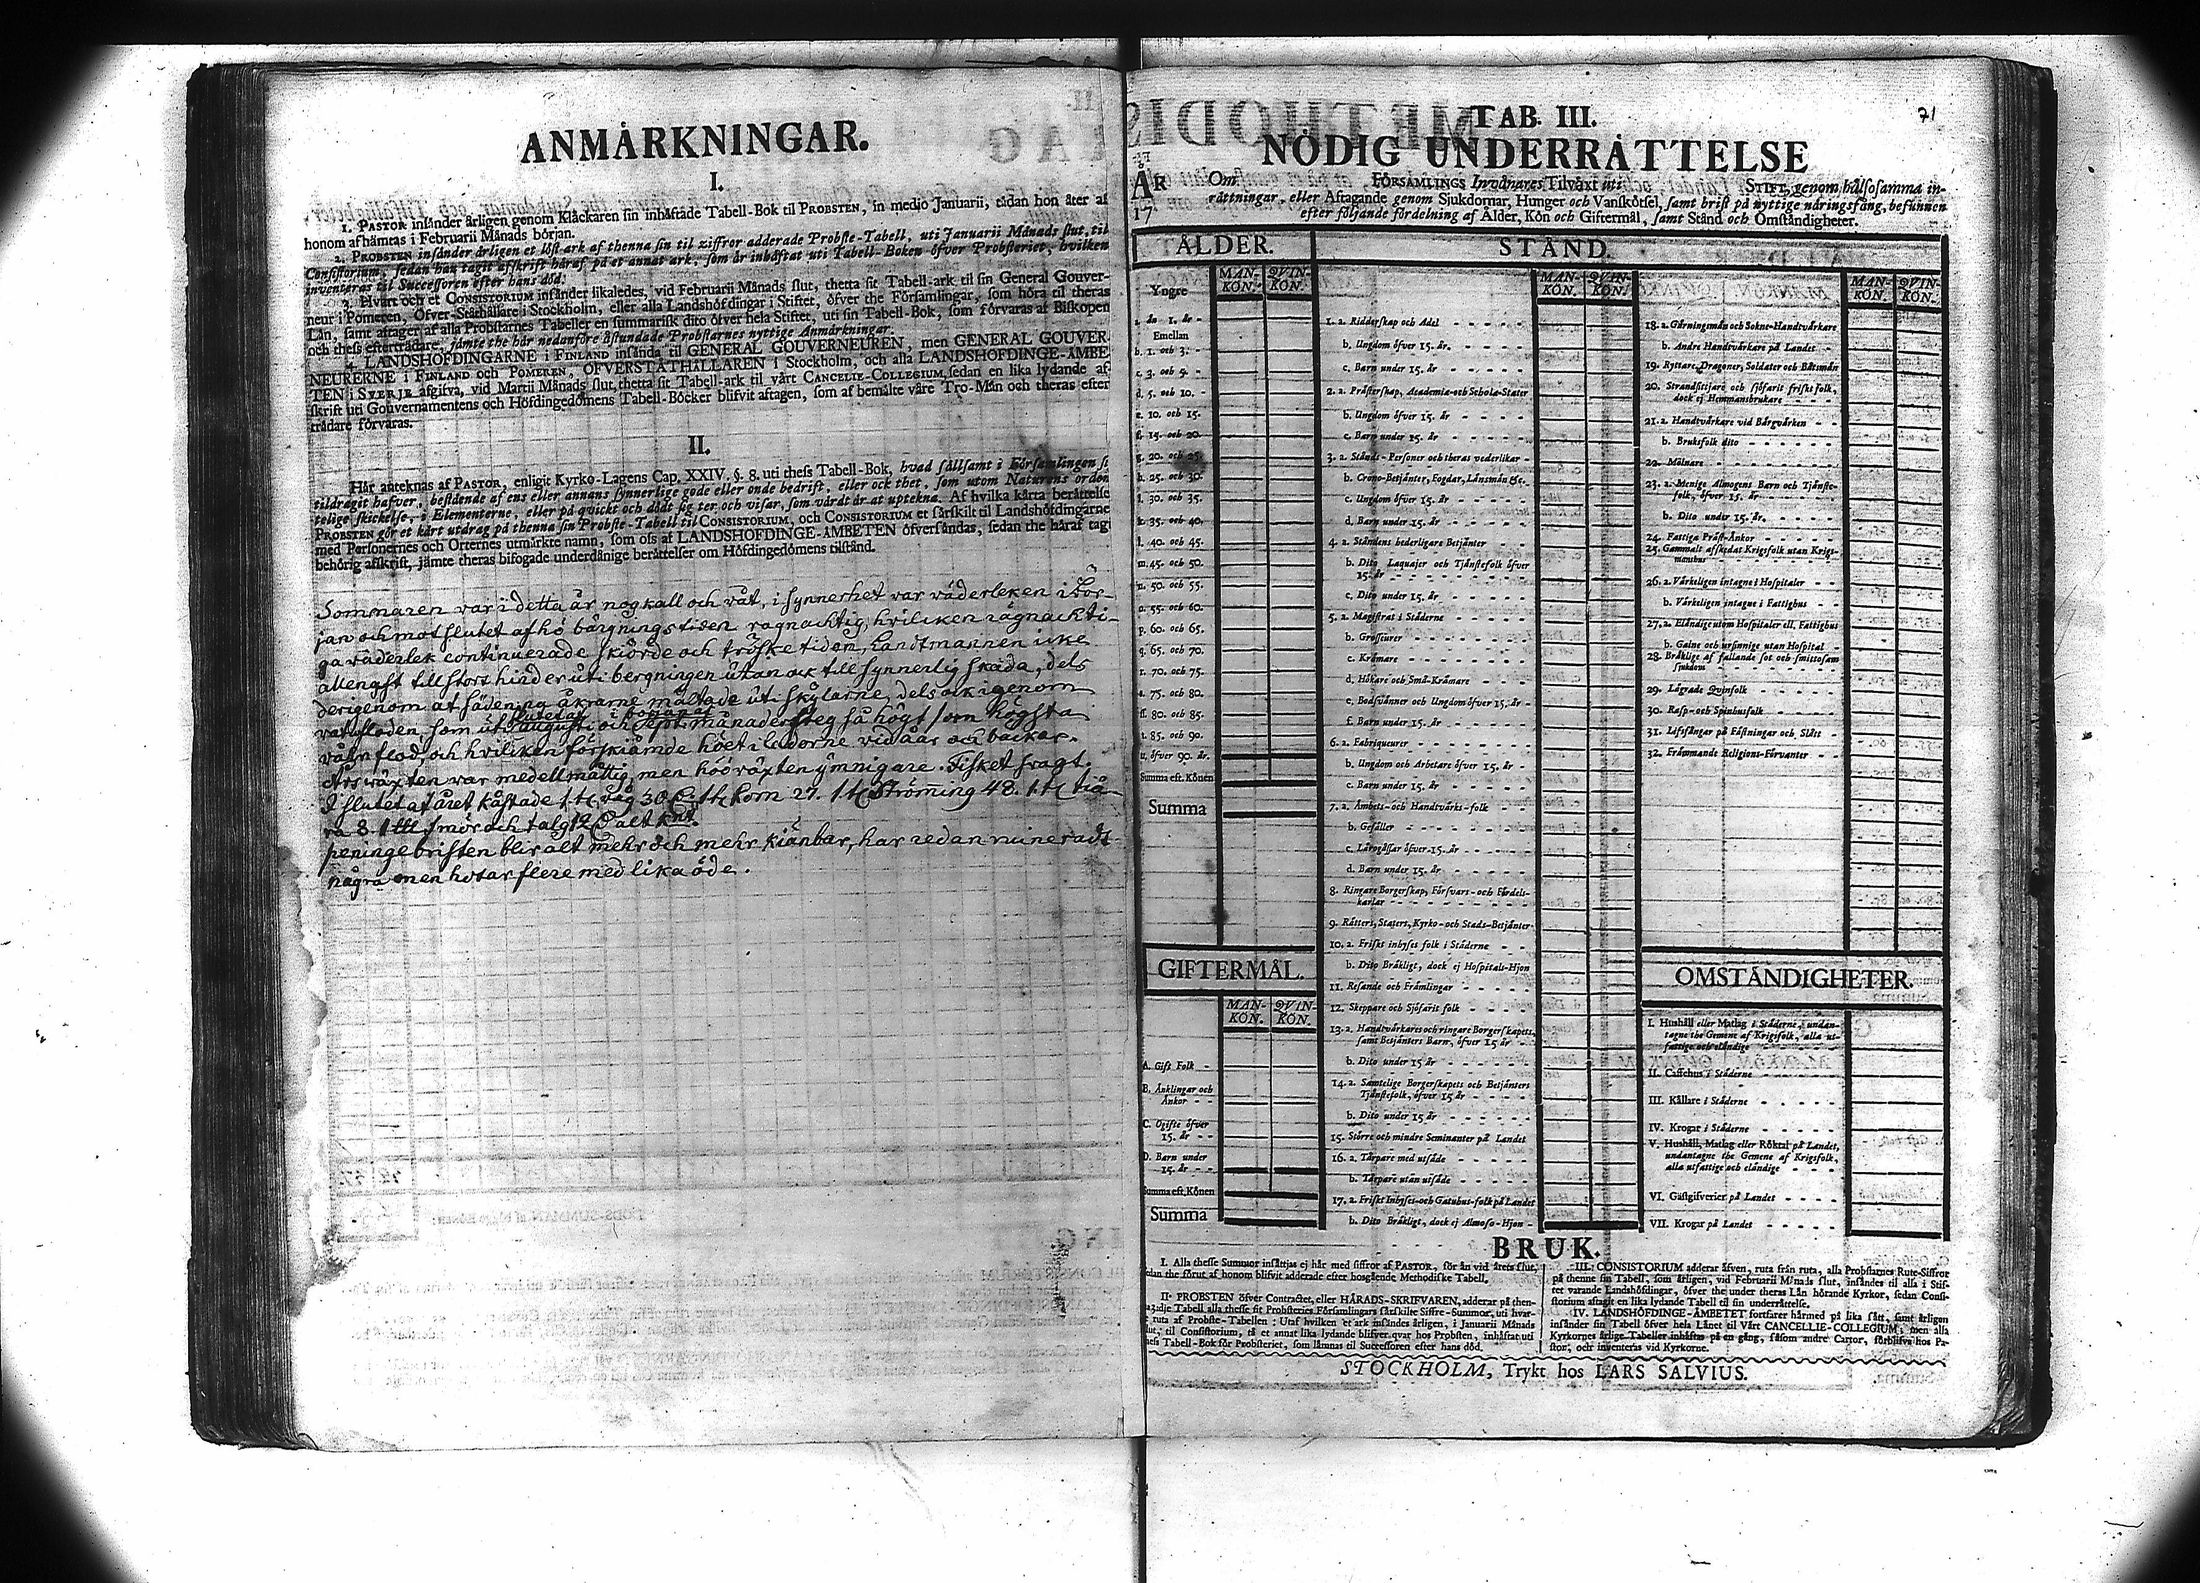 ANMÄRKNINGAR.
I.
1. PASTOR insänder årligen genom Klåckaren sin inhäftade Tabell-Bok til PROBSTEN, in medio Januarii, tådan hon åter af
honom afhämtas i Februarii Månads början.
2. PROBSTEN insänder årligen et löst ark af thenna sin til ziffror adderade Probste-Tabell, uti Januarii Månads slut, til
Consistorium, sedan han tagit afskrift häraf på et annat ark, som är inhäftat uti Tabell-Boken öfver Probsteriet, hvilken
inventeras til Successoren efter hans död.
3. Hvart och et CONSISTORIUM insänder likaledes, vid Februarii Månads slut, thetta sit Tabell-ark til sin General Gouver-
neur i Pomeren, Öfver-Ståthållare i Stockholm, eller alla Landshöfdingar i Stiftet, öfver the Församlingar, som höra til theras
Län, samt aftager af alla Probstarnes Tabeller en summarisk dito öfver hela Stiftet, uti sin Tabell-Bok, som förvaras af Biskopen
och thess efterträdare, jämte the här nedanföre åstundade Probstarnes nyttige Anmärkningar.
4. LANDSHÖFDINGARNE i FINLAND insända til GENERAL GOUVERNEUREN, men GENERAL GOUVER-
NEURERNE i FINLAND och POMEREN, ÖFVERSTÅTHÅLLAREN i Stockholm, och alla LANDSHÖFDINGE-ÄMBE-
TEN i SVERJE afgifva, vid Martii Månads slut, thetta sit Tabell-ark til vårt CANCELIE-COLLEGIUM, sedan en lika lydande af-
skrift uti Gouvernamentens och Höfdingedömens Tabell-Böcker blifvit aftagen, som af bemälte våre Tro-Män och theras efter
trädare förvaras.
II.
Här anteknas af PASTOR, enligit Kyrko-Lagens Cap. XXIV. §. 8. uti thess Tabell-Bok, hvad sällsamt i Församlingen si
tildragit hafver, bestående af ens eller annans synnerlige gode eller onde bedrift, eller ock thet, som utom Naturens orden
telige skickelse, i Elementerne, eller på qvickt och dödt sig ter och visar, som värdt är at uptekna. Af hvilka kårta berättelse
PROBSTEN gör et kårt utdrag på thenna sin Probste-Tabell til CONSISTORIUM, och CONSISTORIUM et särskilt til Landshöfdingarne
med Personernes och Orternes utmärkte namn, som oss af LANDSHÖFDINGE-ÄMBETEN öfversändas, sedan the häraf tagi
behörig afskrift, jämte theras bifogade underdånige berättelser om Höfdingedömens tilstånd.
Sommaren var i detta år nog kall och våt, i synnerhet var väderleken i Bör-
jan och mot slutet af hö bärgnings tiden ragnachtig, hvilken rägnachti-
ga väderlek continuerade skiörde och tröske tiden, Landtmannen icke
allenast till stort hinder uti bergningen utan ock till synnerlig skada, dels
derigenom at säden på åkrarne mältade uti skylarne, dels ock igenom
vatufloden, som uti slutet af Augusti och i början af Sept. månader steg så högt som högsta
vårn flod, och hvilken förskiämde höet i ladorne vid åar och bäckar.
Årswäxten var medellmåttig, men hööväxten ymnigare. Fisket svagt.
I slutet af året kåstade 1 t:a råg 30 t:a korn 27. 1 t:a Strömming 48. 1 t:a tiä-
ra 8. 1 ttt smör och talg 12 alt kmt.
peninge bristen blir alt mehr och mehr kiänbar, har redan ruineradt
några men hotar flere med lika öde.
71
TAB. III.
NÖDIG UNDERRÄTTELSE
ÅR 17 Om FÖRSAMLINGS Invånares Tilväxt uti STIFT, genom hälsosamma in-
rättningar, eller Aftagande genom Sjukdomar, Hunger och Vanskötsel, samt brist på nyttige näringsfång, befunnen
efter följande fördelning af Ålder, Kön och Giftermål, samt Stånd och Omständigheter.
ÅLDER.
MAN-KÖN. QVIN-KÖN.
Yngre
än 1. år -
Emellan
b. 1. och 3. -
c. 3. och 5. -
d. 5. och 10. -
e. 10. och 15.
f. 15. och 20.
g. 20. och 25.
h. 25. och 30.
i. 30. och 35.
k. 35. och 40.
l. 40. och 45.
m. 45. och 50.
n. 50. och 55.
o. 55. och 60.
p. 60. och 65.
q. 65. och 70.
r. 70. och 75.
s. 75. och 80.
ſſ. 80. och 85.
t. 85. och 90.
u. öfver 90. år.
Summa eft. Könen
Summa
GIFTERMÅL.
MAN-KÖN. QVIN-KÖN.
A. Gift Folk -
B. Änklingar och
Änkor - -
C. Ogifte öfver
15. år - -
D. Barn under
15. år - -
Summa eft. Könen
Summa
STÅND.
MAN-KÖN. QVIN-KÖN.
1. a. Ridderskap och Adel
b. Ungdom öfver 15. år.
c. Barn under 15. år
2. a. Prästerskap, Academia- och Schola-Stater
b. Ungdom öfver 15. år
c. Barn under 15. år
3. a. Stånds-Personer och theras vederlikar
b. Crono-Betjänter, Fogdar, Länsmän &c.
c. Ungdom öfver 15. år
d. Barn under 15. år
4. a. Ståndens hederligare Betjänter
b. Dito Laquajer och Tjänstefolk öfver
15. år
c. Dito under 15. år
5. a. Magistrat i Städerne
b. Grosseurer
c. Krämare
d. Hökare och Små-Krämare
e. Bodsvänner och Ungdom öfver 15. år
f. Barn under 15. år
6. a. Fabriqueurer
b. Ungdom och Arbetare öfver 15. år
c. Barn under 15. år
7. a. Ämbets- och Handtvärks-folk
b. Gesäller
c. Lärogåssar öfver 15. år
d. Barn under 15. år
8. Ringare Borgerskap, Försvars- och Fördels-
karlar
9. Rätters, Staters, Kyrko- och Stads-Betjänter
10. a. Friskt inhyses folk i Städerne
b. Dito Bräkligt, dock ej Hospitals-Hjon
11. Resande och Främlingar
12. Skeppare och Sjöfarit folk
13. a. Handtvärkares och ringare Borgerskapets,
samt Betjänters Barn, öfver 15 år
b. Dito under 15. år
14. a. Samtelige Borgerskapets och Betjänters
Tjänstefolk, öfver 15 år
b. Dito under 15 år
15. Större och mindre Seminanter på Landet
16. a. Tårpare med utsäde
b. Tårpare utan utsäde
17. a. Friskt Inhyses- och Gatuhus-folk på Landet
b. Dito Bräkligt, dock ej Almoso-Hjon
MAN-KÖN. QVIN-KÖN.
18. a. Gärningsmän och Sokne-Handtvärkare
b. Andre Handtvärkare på Landet
19. Ryttare, Dragoner, Soldater och Båtsmän
20. Strandsittjare och sjöfarit friskt folk,
dock ej Hemmansbrukare
21. a. Handtvärkare vid Bärgvärken
b. Bruksfolk dito
22. Mölnare
23. a. Menige Allmogens Barn och Tjänste-
folk, öfver 15. år
b. Dito under 15. år.
24. Fattiga Präst-Änkor
25. Gammalt afskedat Krigsfolk utan Krigs-
manshus
26. a. Värkeligen intagne i Hospitaler
b. Värkeligen intagne i Fattighus
27. a. Eländige utom Hospitaler ell. Fattighus
b. Galne och ursinnige utan Hospital
28. Bräklige af fallande sot och smittosam
sjukdom
29. Lägrade Qvinfolk
30. Rasp- och Spinhusfolk
31. Lifsfångar på Fästningar och Slått
32. Främmande Religions-Förvanter
OMSTÄNDIGHETER.
I. Hushåll eller Matlag i Städerne, undan-
tagne the Gemene af Krigsfolk, alla ut-
fattige och eländige
II. Caffehus i Städerne
III. Källare i Städerne
IV. Krogar i Städerne
V. Hushåll, Matlag eller Röktal på Landet,
undantagne the Gemene af Krigsfolk,
alla utfattige och eländige
VI. Gästgifverier på Landet
VII. Krogar på Landet
BRUK.
I. Alla thesse Summor insättjas ej här med siffror af PASTOR, för än vid årets slut,
sedan the förut af honom blifvit adderade efter hosgående Methodiske Tabell.
II. PROBSTEN öfver Contractet, eller HÄRADS-SKRIFVAREN, adderar på then-
tredje Tabell alla thesse sit Probsteries Församlingars särskilte Siffre-Summor, uti hvar-
je ruta af Probste-Tabellen: Utaf hvilken et ark insändes årligen, i Januarii Månads
slut, til Consistorium, tå et annat lika lydande blifver qvar hos Probsten, inhäftat uti
thess Tabell-Bok för Probsteriet, som lämnas til Successoren efter hans död.
III. CONSISTORIUM adderar äfven, ruta från ruta, alla Probstarnes Rute-Siffror
på thenne sin Tabell, som årligen, vid Februarii Månads slut, insändes til alla i Stif-
tet varande Landshöfdingar, öfver the under theras Län hörande Kyrkor, sedan Consi-
storium aftagit en lika lydande Tabell til sin underrättelse.
IV. LANDSHÖFDINGE-ÄMBETET fortfarer härmed på lika sätt, samt årligen
insänder sin Tabell öfver hela Länet til Vårt CANCELLIE-COLLEGIUM; men alla
Kyrkornes årlige Tabeller inhäftas på en gång, såsom andre Cartor, förblifva hos Pa-
stor, och inventeras vid Kyrkorne.
STOCKHOLM, Trykt hos LARS SALVIUS.